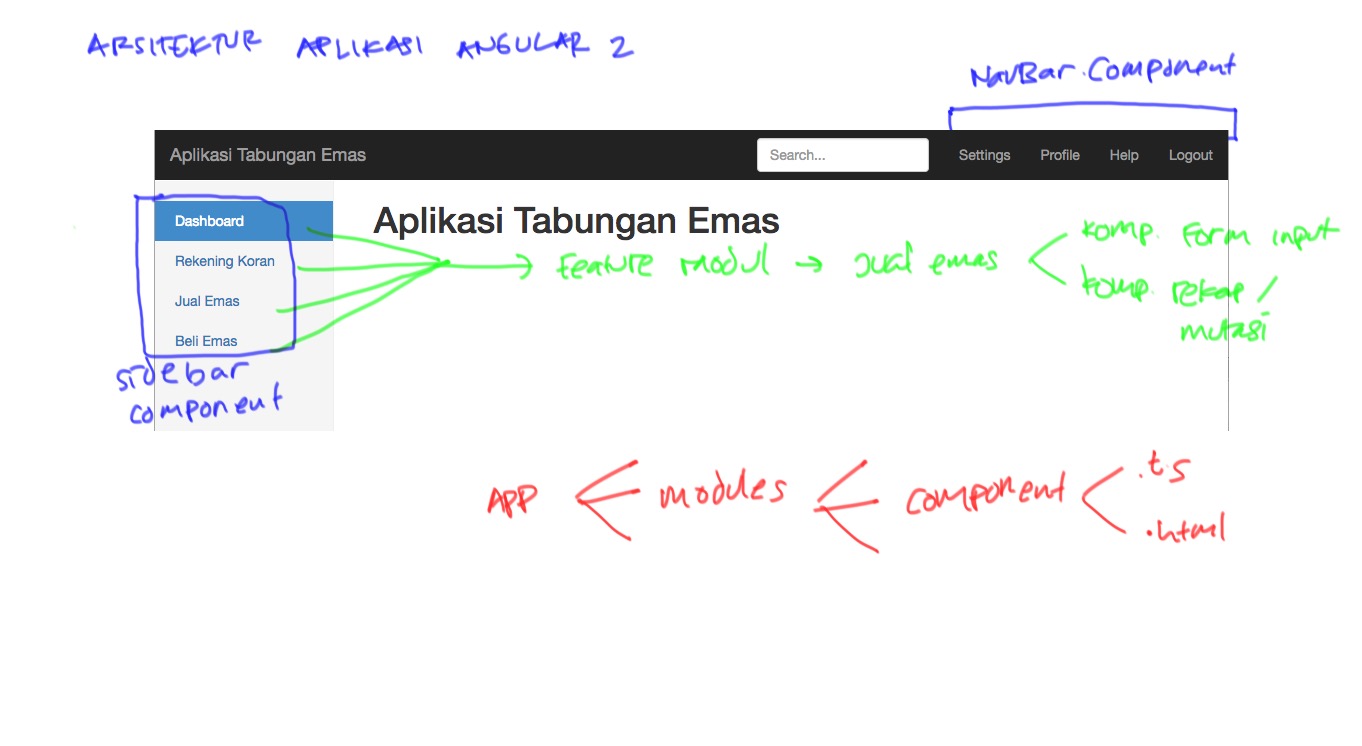 ARSITEKTUR APLIKASI ANGULAR 2
NavBar.Component
Aplikasi Tabungan Emas
Search...
Settings Profile Help Logout
Dashboard
Rekening Koran
Jual Emas
Beli Emas
sidebar
component
Aplikasi Tabungan Emas
Feature modul → Jual emas
komp. Form input
komp. rekap /
mutasi
APP
modules
component
.ts
.html